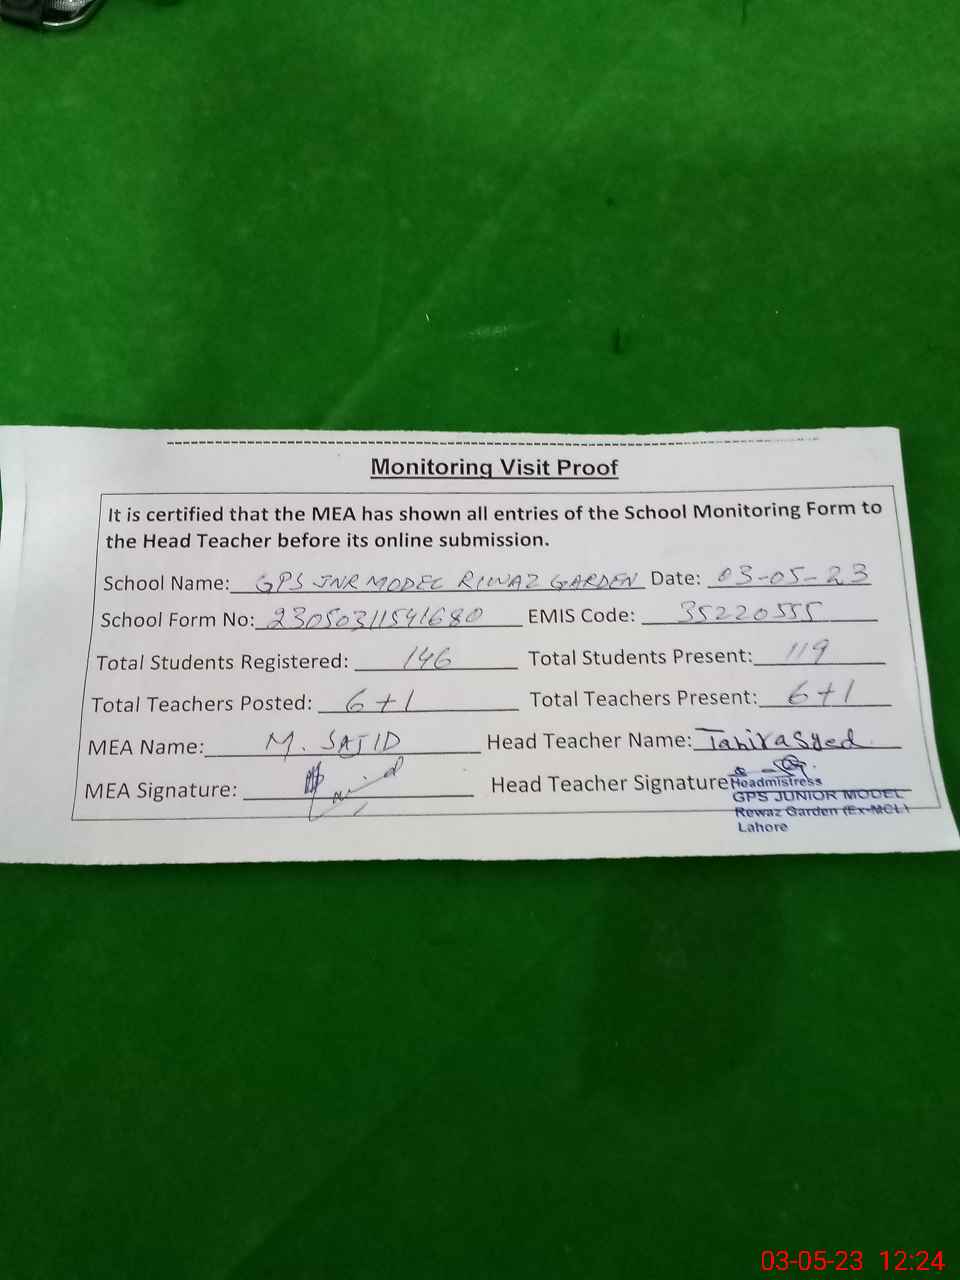 Monitoring Visit Proof
It is certified that the MEA has shown all entries of the School Monitoring Form to
the Head Teacher before its online submission.
School Name: GPS JNR MODEL RIWAZ GARDEN Date: 03-05-23
School Form No: 23050311541680 EMIS Code: 35220555
Total Students Registered: 146 Total Students Present: 119
Total Teachers Posted: 6+1 Total Teachers Present: 6+1
MEA Name: M. SAJID Head Teacher Name: Tahira Syed
MEA Signature: Head Teacher Signature
Headmistress
GPS JUNIOR MODEL
Rewaz Garden (Ex-MCL)
Lahore
03-05-23 12:24